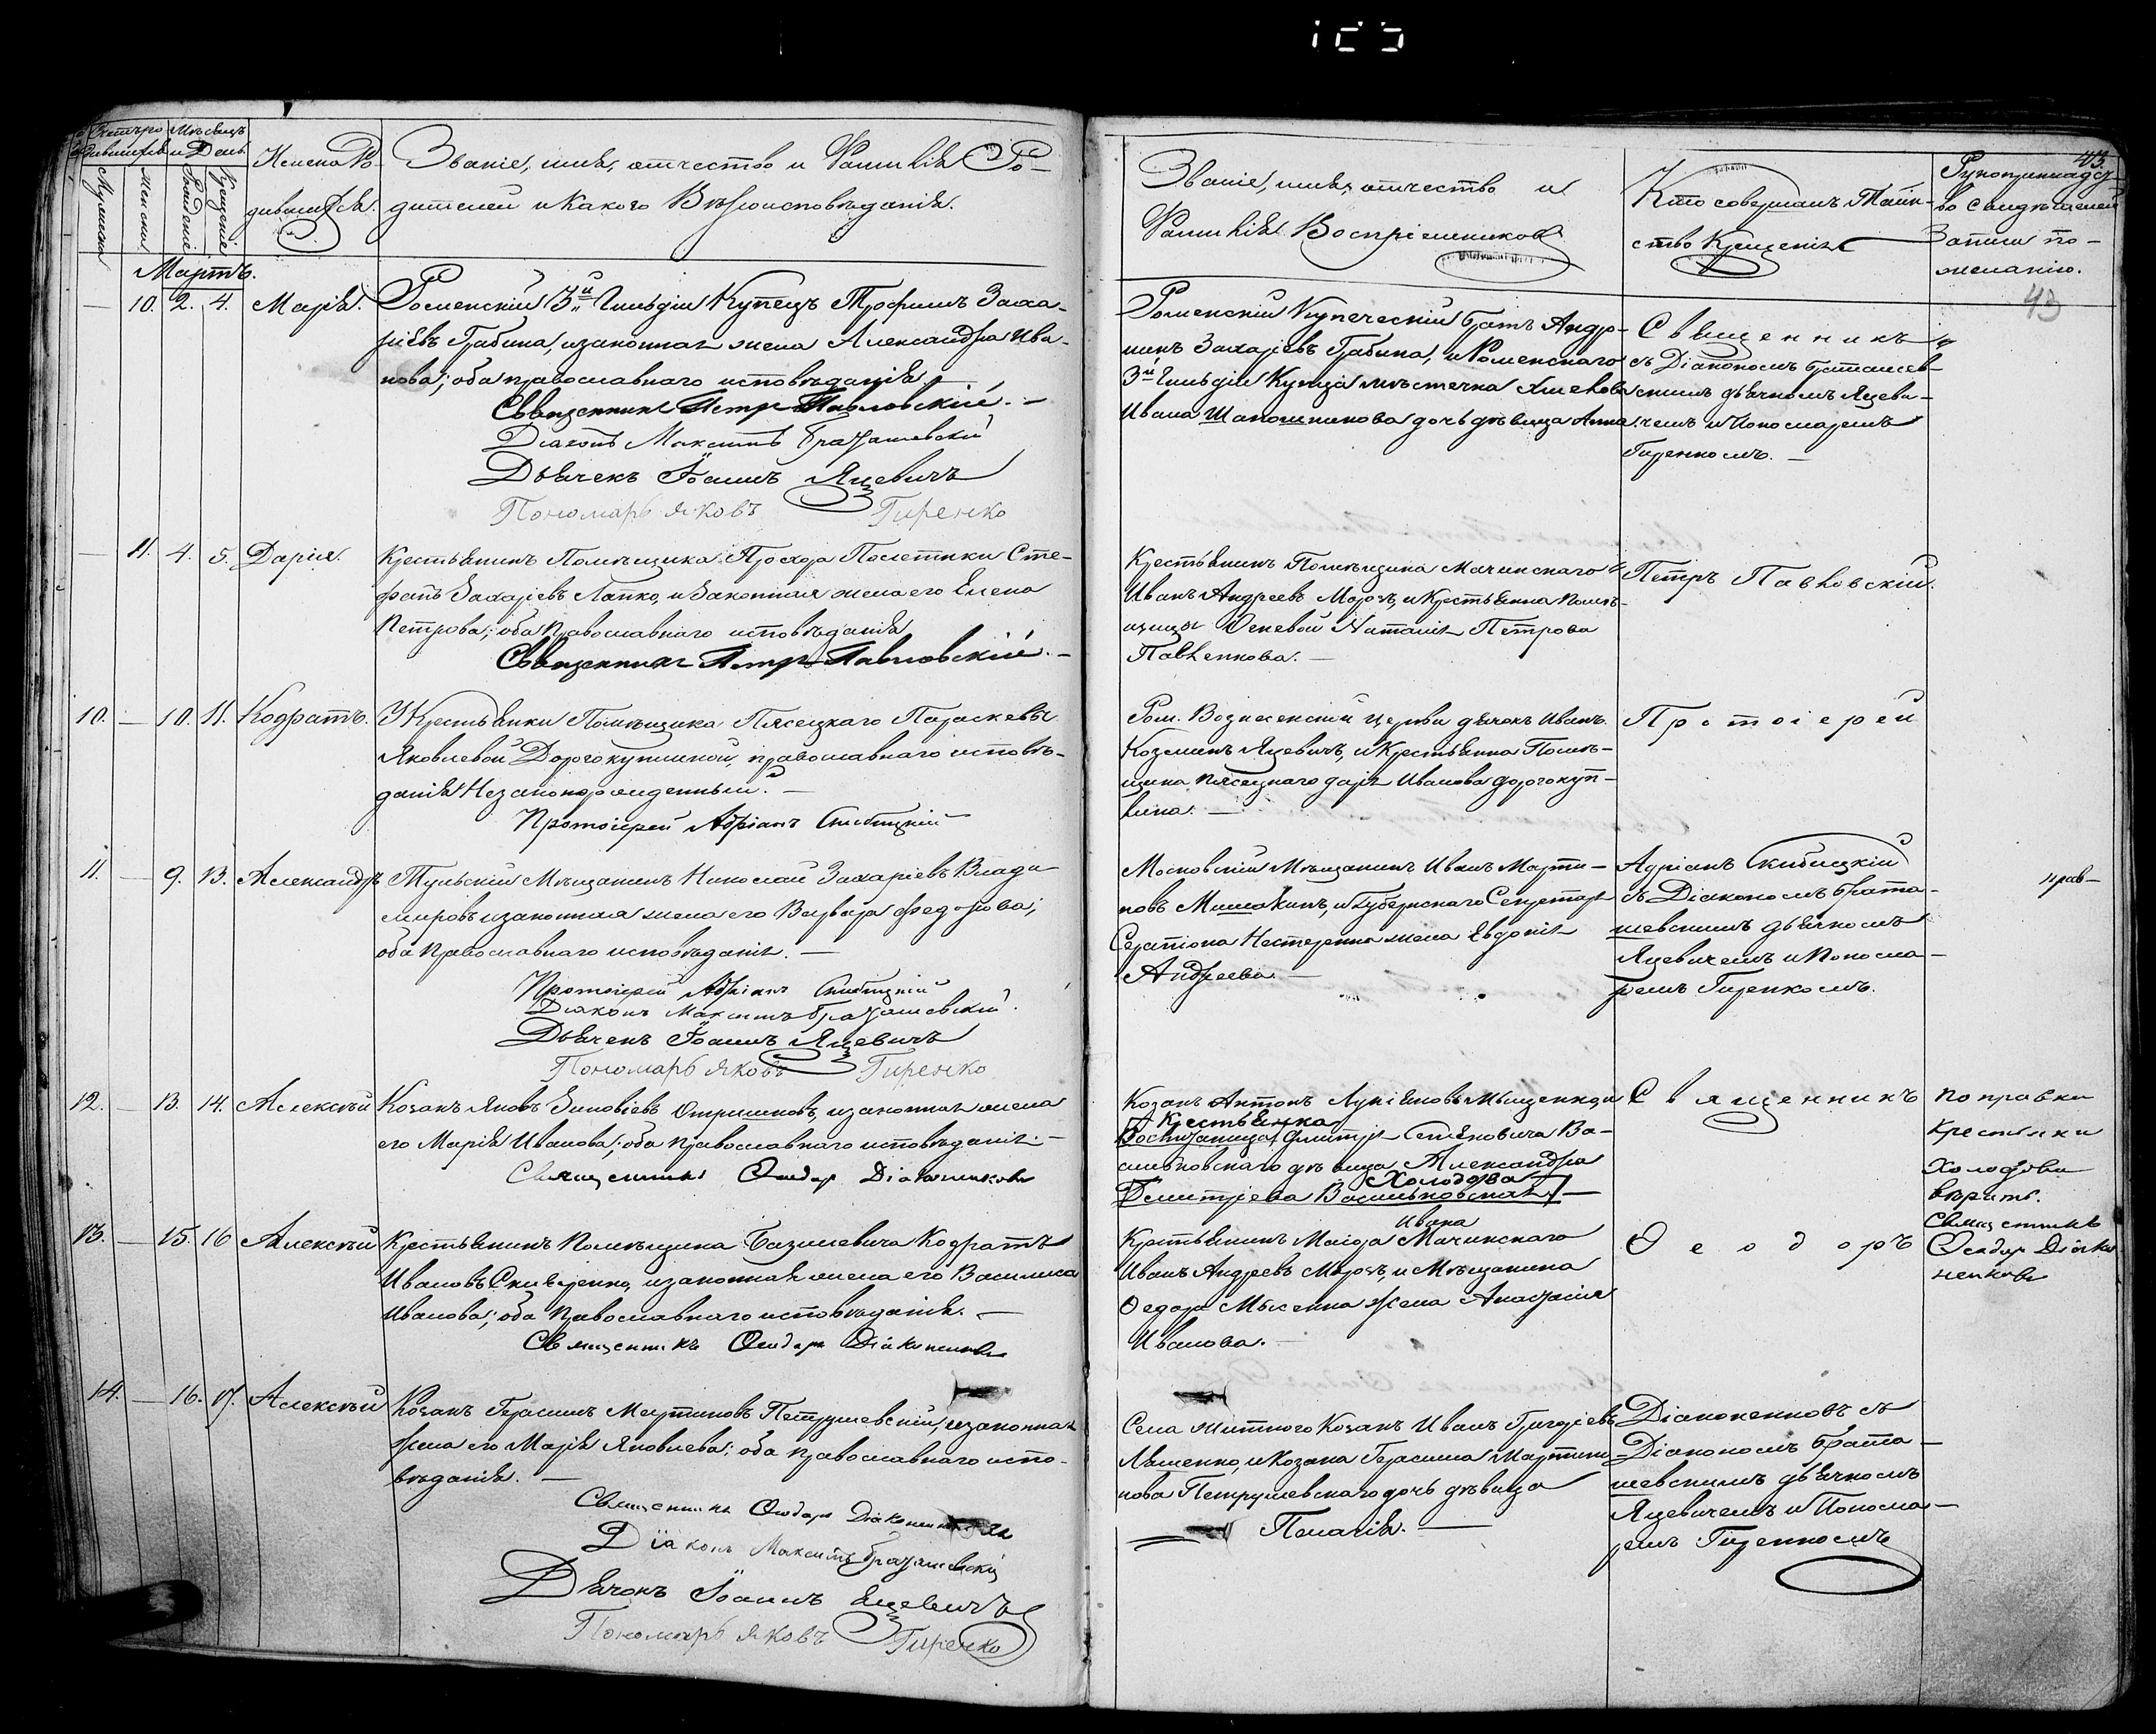 43.
Счетъ ро
дившихся
Мѣсяцъ
и День
Мужеска
Женска
Рожденіе
Крещеніе
Имена Ро-
дившихся.
Званіе, имя, отчество и Фамилія Ро-
дителей и какого Вѣроисповѣданія.
Званіе, имя, отчество и
Фамилія Воспріемниковъ
Кто совершалъ Таин-
ство Крещенія
Рукоприкладст-
во свидѣтелей
Записи по-
желанію.
43
Мартъ.
— 10. 2. 4. Марія.
Роменскій 3й Гильдіи Купецъ Трофимъ Заха-
ріевъ Грабина, и законная жена Александра Ива-
нова; оба православнаго исповѣданія.
Священникъ Петръ Павловскій. —
Діаконъ Максимъ Браташевскій
Дьячекъ Іоаннъ Яцевичъ
Пономарь Яковъ Гиренко
Роменскій Купеческій братъ Андро-
никъ Захаріевъ Грабина, и Роменскаго
3й Гильдіи Купца мѣстечка Хмелова
Ивана Шапошникова дочь дѣвица Анна.
Священникъ
съ Діакономъ Браташев-
скимъ дьячкомъ Яцеви-
чемъ и Пономаремъ
Гиренкомъ. —
— 11. 4. 5. Дарія.
Крестьянинъ Помѣщика Прохора Полетики Сте-
фанъ Захаріевъ Лапко, и законная жена его Елена
Петрова; оба Православнаго исповѣданія
Священникъ Петръ Павловскій. —
Крестьянинъ Помѣщика Мачинскаго
Иванъ Андреевъ Морозъ, и Крестьянка Помѣ-
щицы Наталія Петрова
Павленкова. —
Петръ Павловскій.
10. — 10. 11. Кодратъ.
У Крестьянки Помѣщика Пясецкаго Параскевы
Яковлевой Дорогокуплиной, православнаго исповѣ-
данія Незаконорожденный. —
Протоіерей Адріанъ Скибицкій
Ром. Вознесенской Церкви дьячокъ Иванъ
Козминъ Яцевичъ, и Крестьянка Помѣ-
щика Пясецкаго Дарія Иванова Дорогокуп-
лина. —
Протоіерей
11. — 9. 13. Александръ
Тульскій Мѣщанинъ Николай Захаріевъ Влади
міровъ и законная жена его Варвара Федорова;
оба Православнаго исповѣданія. —
Протоіерей Адріанъ Скибицкій
Діаконъ Максимъ Браташевскій.
Дьячекъ Іоаннъ Яцевичъ
Пономарь Яковъ Гиренко
Московскій Мѣщанинъ Иванъ Марти-
новъ и Губернскаго Секретаря
Серапіона Нестеренка жена Евдокія
Андреева. —
Адріанъ Скибицкій
съ Діакономъ Брата-
шевскимъ дьячкомъ
Яцевичемъ и Понома-
ремъ Гиренкомъ.
12. — 13. 14. Алексѣй
Козакъ Яковъ Зиновіевъ и законная жена
его Марія Иванова; оба православнаго исповѣданія. —
Священникъ Ѳеодоръ Діаконенковъ
Козакъ Антонъ Лукіяновъ и
Крестьянка
Воспитаница Дмитрія Ва-
сильковскаго дѣвица Александра
Холодова
Димитріева Васильковская —
Священникъ
поправки
крестянки
Холодова
вѣрить.
Священникъ
Ѳеодоръ Діако
ненковъ
13. — 15. 16 Алексѣй
Крестьянинъ Помѣщика Базилевича Кодратъ
Ивановъ и законная жена его Василиса
Иванова; оба Православнаго исповѣданія. —
Священникъ Ѳеодоръ Діаконенковъ
Ивана
Крестьянинъ Маіора Мачинскаго
Иванъ Андреевъ Морозъ, и Мѣщанина
Ѳедора жена Анастасія
Иванова. —
Ѳеодоръ
14. — 16. 17. Алексѣй
Козакъ Герасимъ Мартиновъ Петрушевскій, и законная
жена его Марія Яковлева; оба православнаго испо-
вѣданія. —
Священникъ Ѳеодоръ Діаконенковъ
Діаконъ Максимъ Браташевскій
Дьячокъ Іоаннъ Яцевичъ
Пономарь Яковъ Гиренко
Села Козакъ Иванъ Григоріевъ
и Козака Герасима Мартино-
нова Петрушевскаго дочь дѣвица
Пелагія. —
Діаконенковъ съ
Діакономъ Брата-
шевскимъ дьячкомъ
Яцевичемъ и Понома-
ремъ Гиренкомъ